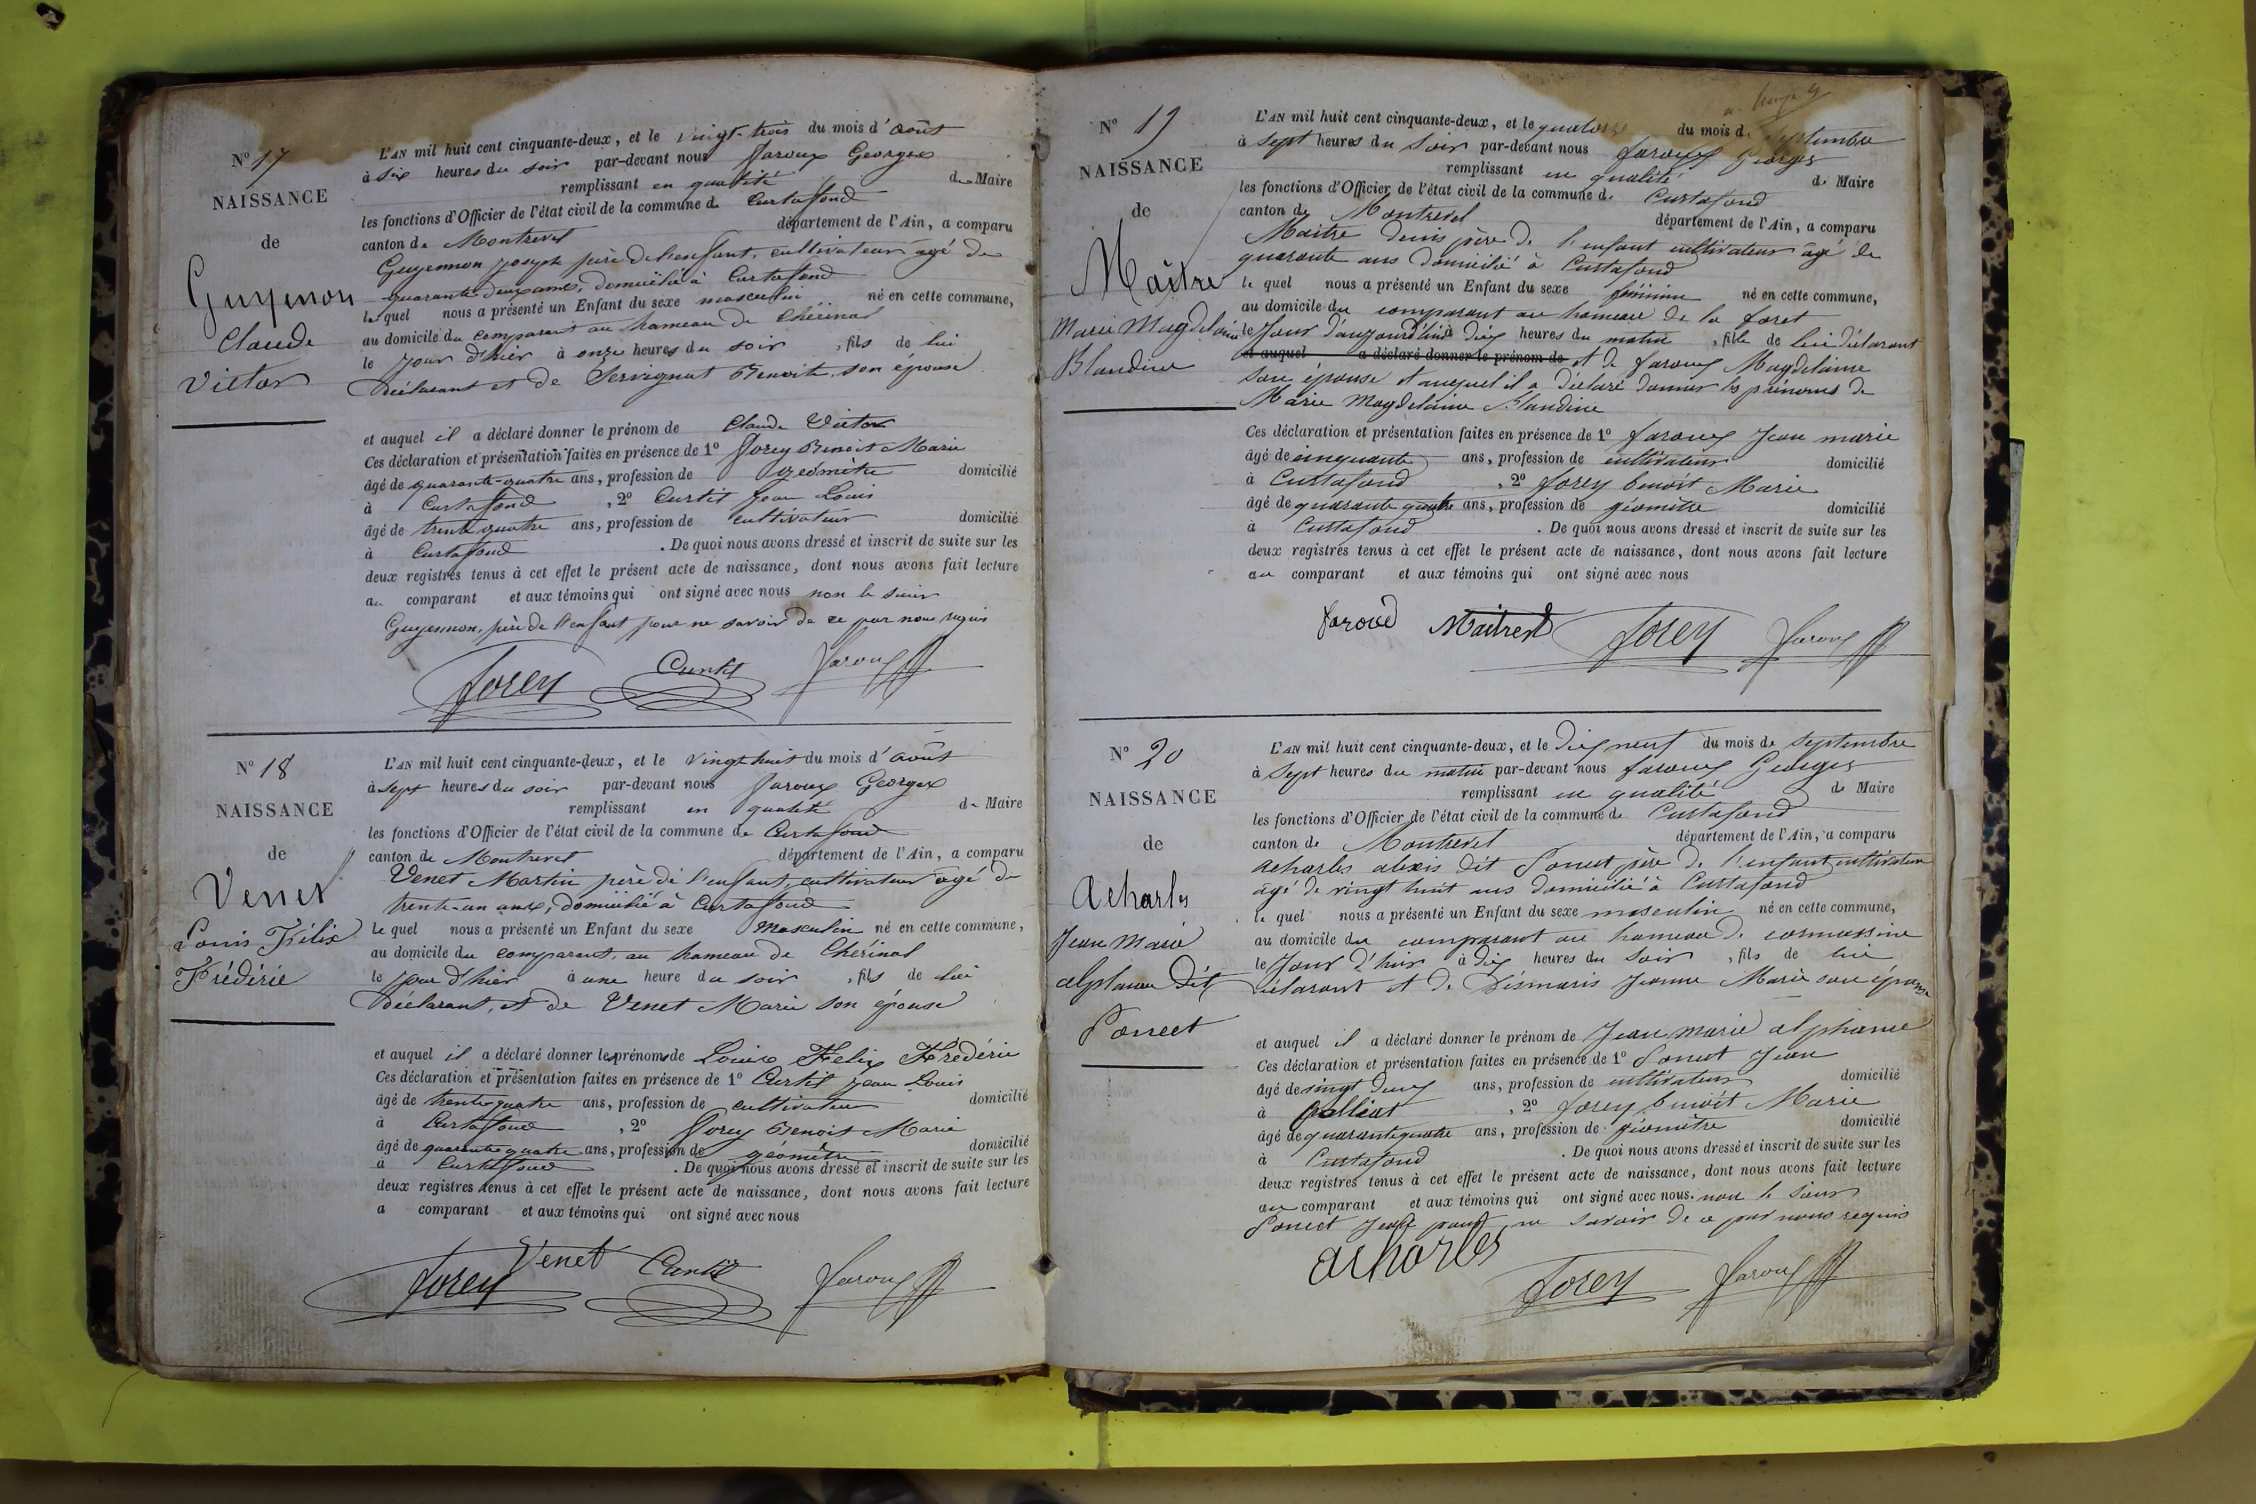 Nº 17
NAISSANCE
de
Guyennon
Claude
Victor
L'AN mil huit cent cinquante-deux, et le vingt-trois du mois d'août
à six heures du soir par-devant nous Faroux Georges
remplissant en qualité de Maire
les fonctions d'Officier de l'état civil de la commune de Curtafond
canton de Montrevel département de l'Ain, a comparu
Guyennon joseph père de l'enfant, cultivateur âgé de
quarante deux ans, domicilié à Curtafond
lequel nous a présenté un Enfant du sexe masculin né en cette commune,
au domicile du comparant au hameau de Chérinal
le jour d'hier à onze heures du soir, fils de lui
Déclarant et de Servignat Benoite son épouse
et auquel il a déclaré donner le prénom de Claude Victor
Ces déclaration et présentation faites en présence de 1º Forey Benoit Marie
âgé de quarante-quatre ans, profession de géomètre domicilié
à Curtafond, 2º Curtil Jean Louis
âgé de trente quatre ans, profession de cultivateur domicilié
à Curtafond. De quoi nous avons dressé et inscrit de suite sur les
deux registres tenus à cet effet le présent acte de naissance, dont nous avons fait lecture
au comparant et aux témoins qui ont signé avec nous non le sieur
Guyennon, père de l'enfant pour ne savoir de ce par nous requis
Forey Curtil Faroux
Nº 18
NAISSANCE
de
Venet
Louis Félix
Frédéric
L'AN mil huit cent cinquante-deux, et le vingt huit du mois d'août
à sept heures du soir par-devant nous Faroux Georges
remplissant en qualité de Maire
les fonctions d'Officier de l'état civil de la commune de Curtafond
canton de Montrevel département de l'Ain, a comparu
Venet Martin père de l'enfant, cultivateur âgé de
trente-un ans, domicilié à Curtafond
le quel nous a présenté un Enfant du sexe Masculin né en cette commune,
au domicile du comparant, au hameau de Chérinal
le jour d'hier à une heure du soir, fils de lui
Déclarant, et de Venet Marie son épouse
et auquel il a déclaré donner les prénoms de Louis Felix Frédéric
Ces déclaration et présentation faites en présence de 1º Curtil jean Louis
âgé de trente quatre ans, profession de cultivateur domicilié
à Curtafond, 2º Forey Benoit Marie
âgé de quarante quatre ans, profession de géomètre domicilié
à Curtafond. De quoi nous avons dressé et inscrit de suite sur les
deux registres tenus à cet effet le présent acte de naissance, dont nous avons fait lecture
a comparant et aux témoins qui ont signé avec nous
Forey Venet Curtil Faroux
Nº 19
NAISSANCE
de
Maître
Marie Magdelaine
Blandine
L'AN mil huit cent cinquante-deux, et le quatorze du mois de septembre
à sept heures du soir par-devant nous faroux Georges
remplissant en qualité de Maire
les fonctions d'Officier de l'état civil de la commune de Curtafond
canton de Montrevel département de l'Ain, a comparu
Maitre denis père de l'enfant cultivateur âgé de
quarante ans domicilié à Curtafond
le quel nous a présenté un Enfant du sexe féminin né en cette commune,
au domicile du comparant au hameau de la foret
le Jour d'aujourd'hui à dix heures du matin, fille de lui déclarant
et auquel a déclaré donner le prénom de et de faroux Magdelaine
son épouse et auquel il a déclaré donner les prénoms de
Marie Magdelaine Blandine
Ces déclaration et présentation faites en présence de 1º faroux Jean marie
âgé de cinquante ans, profession de cultivateur domicilié
à Curtafond, 2º forey benoit Marie
âgé de quarante quatre ans, profession de géomètre domicilié
à Curtafond. De quoi nous avons dressé et inscrit de suite sur les
deux registres tenus à cet effet le présent acte de naissance, dont nous avons fait lecture
au comparant et aux témoins qui ont signé avec nous
faroud Maitre Forey Faroux
Nº 20
NAISSANCE
de
Acharles
Jean Marie
alphonse Dit
Poncet
L'AN mil huit cent cinquante-deux, et le Dix neuf du mois de septembre
à sept heures du matin par-devant nous faroux Georges
remplissant en qualité de Maire
les fonctions d'Officier de l'état civil de la commune de Curtafond
canton de Montrevel département de l'Ain, a comparu
acharles alexis dit Poncet père de l'enfant cultivateur
âgé de vingt huit ans domicilié à Curtafond
le quel nous a présenté un Enfant du sexe masculin né en cette commune,
au domicile du comparant au hameau de cormassine
le Jour d'hier à dix heures du soir, fils de lui
déclarant et de Désmaris Jeanne Marie son épouse
et auquel il a déclaré donner le prénom de Jean marie alphonse
Ces déclaration et présentation faites en présence de 1º Poncet Jean
âgé de vingt deux ans, profession de cultivateur domicilié
à Polliat, 2º forey benoit Marie
âgé de quarante quatre ans, profession de géomètre domicilié
à Curtafond. De quoi nous avons dressé et inscrit de suite sur les
deux registres tenus à cet effet le présent acte de naissance, dont nous avons fait lecture
au comparant et aux témoins qui ont signé avec nous. non le sieur
Poncet Jean pour ne savoir de ce par nous requis
acharles Forey Faroux